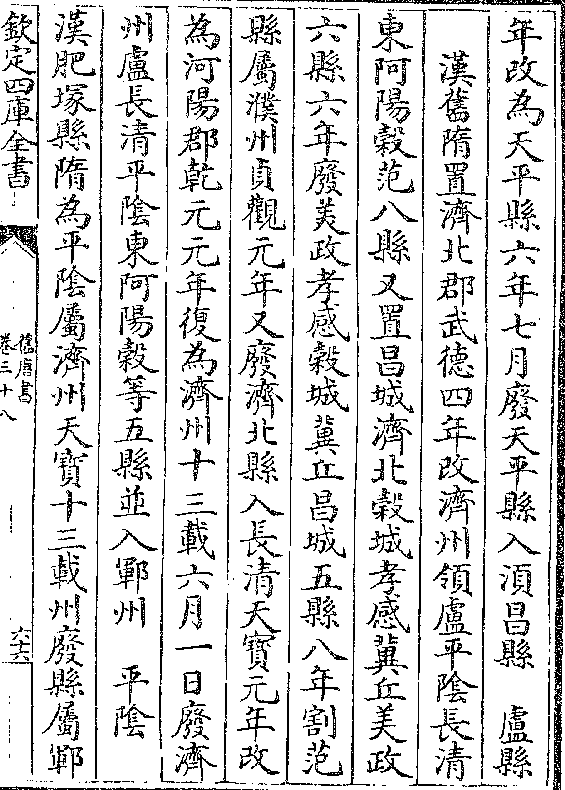 年改為天平縣六年七月廢天平縣入湏昌縣　盧縣
漢舊隋置濟北郡武德四年改濟州領盧平陰長清
東阿陽穀范八縣又置昌城濟北穀城孝感冀丘美政
六縣六年廢美政孝感穀城冀丘昌城五縣八年割范
縣屬濮州貞觀元年又廢濟北縣入長清天寶元年改
為河陽郡乾元元年復為濟州十三載六月一日廢濟
州盧長清平陰東阿陽穀等五縣並入鄆州　平陰
漢肥塚縣隋為平陰屬濟州天寶十三載州廢縣屬鄆
欽定四庫全書
舊唐書
卷三十八
六十六